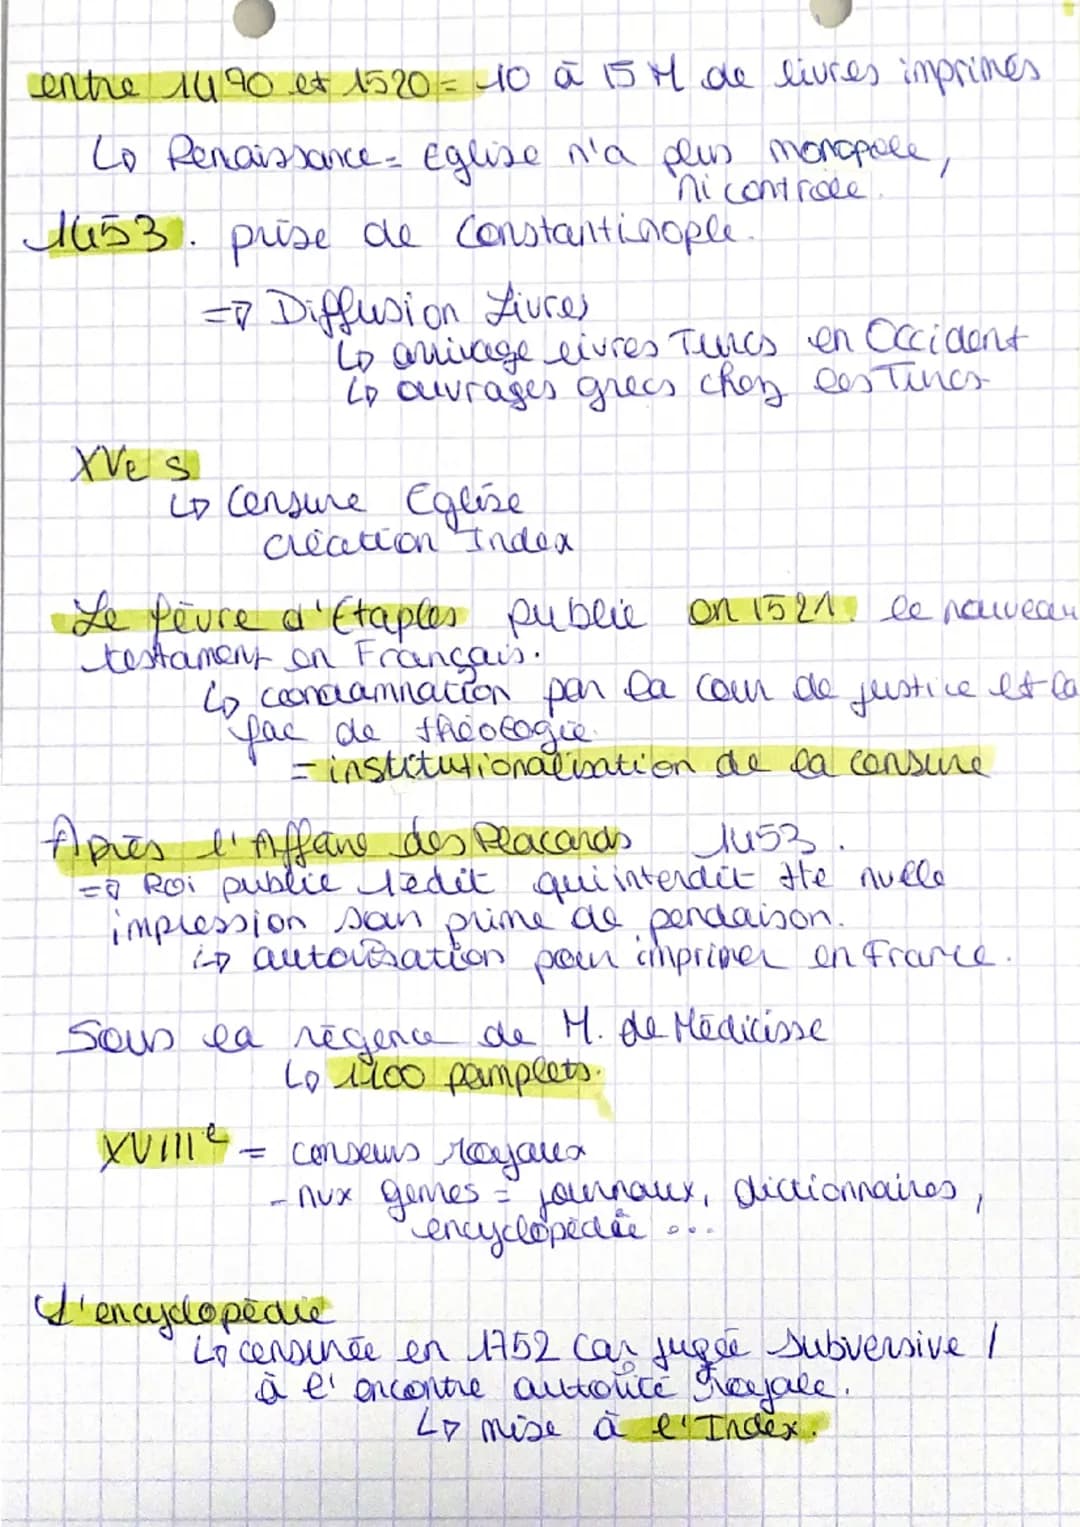 entre 1490 et 1520 = 10 à 15 M de livres imprimés
↳ Renaissance = Eglise n'a plus monopole,
ni controle.
1453. prise de Constantinople.
=> Diffusion Livres
↳ arrivage livres Turcs en Occident
↳ ouvrages grecs chez les Turcs
XVe s
↳ Censure Eglise
création Index
Le fèvre d'Etaples publie en 1521. le nouveau
testament en Français.
↳ condamnation par la Cour de justice et la
fac de théologie.
= institutionalisation de la censure
Après l'Affaire des Placards 1453.
=> Roi publie 1 edit qui interdit tte nvelle
impression sous prime de pendaison.
↳ autorisation pour imprimer en France.
Sous la régence de M. de Médicisse
↳ 1200 pamplets.
XVIIIe = censeurs royaux
- nvx genres = journaux, dictionnaires,
encyclopédie ...
L'encyclopédie
↳ censurée en 1752 car jugée subversive /
à l'encontre autorité Royale.
↳ mise à l'Index.